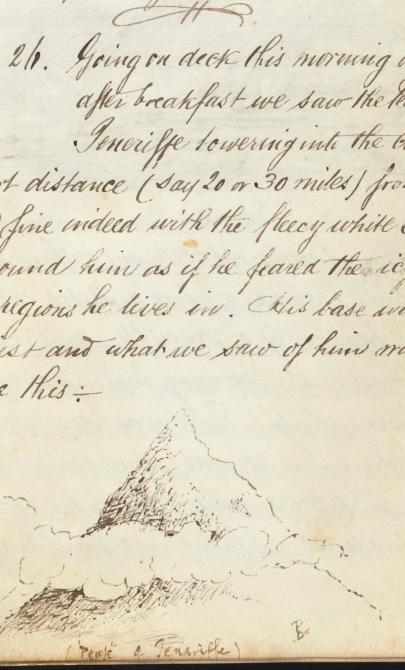 26. Going on deck this morning
after breakfast we saw the
Teneriffe towering into the
distance (say 20 or 30 miles)
fine indeed with the fleecy white
ound him as if he feared the
regions he lives in. His base
and what we saw of him
this:-
(Peak of Teneriffe)